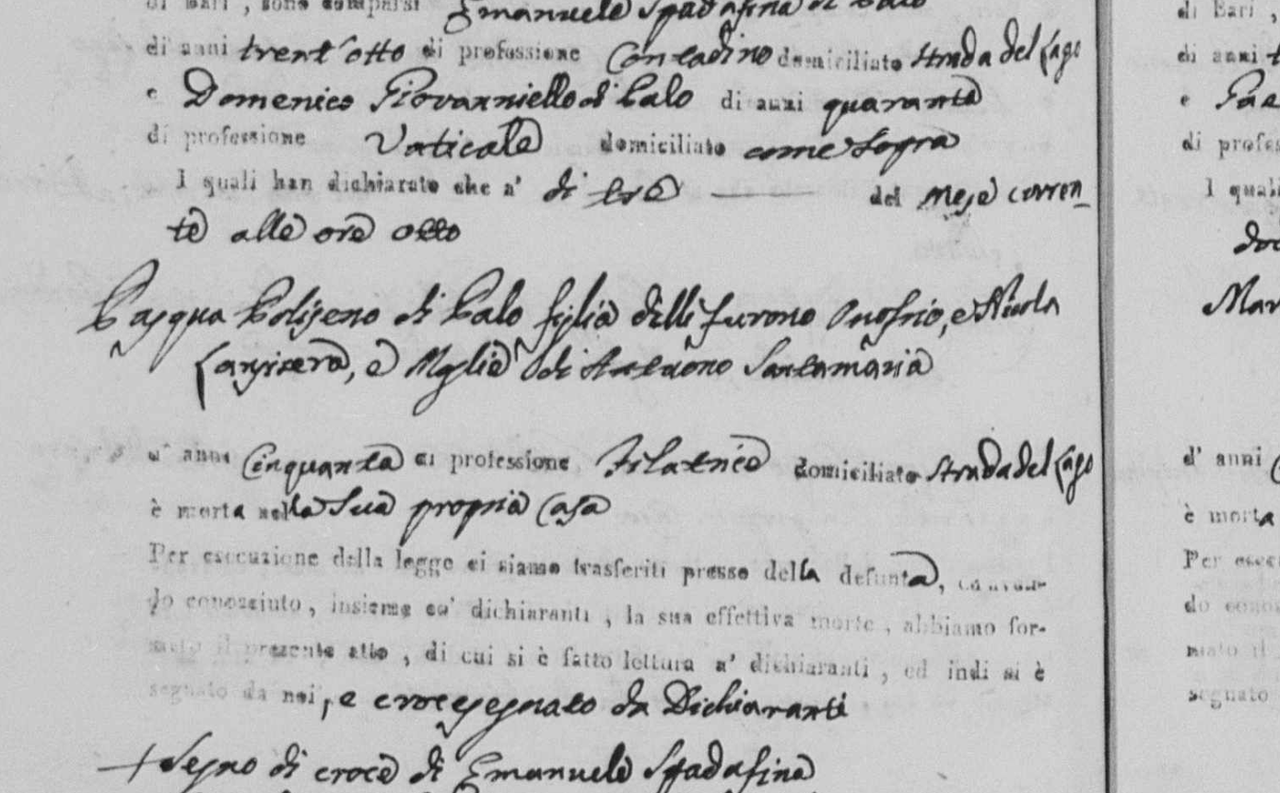 di Bari, sono comparsi Emanuele Spadafina di Palo
di anni trent'otto di professione Contadino domiciliato strada del Lago
e Domenico Giovanniello di Palo di anni quaranta
di professione Vaticale domiciliato come sopra
I quali han dichiarato che a' di tre del mese corren_
te alle ore otto
Pasqua Poliseno di Palo figlia delli furono Onofrio, e Nicola
e Moglie di Santamaria
d' anni Cinquanta di professione Filatrice domiciliata strada del Lago
è morta nella sua propria Casa
Per esecuzione della legge ci siamo trasferiti presso della defunta, ed aven-
do conosciuto, insieme co' dichiaranti, la sua effettiva morte, abbiamo for-
mato il presente atto, di cui si è fatto lettura a' dichiaranti, ed indi si è
segnato da noi, e crocesegnato da Dichiaranti
+ Segno di croce di Emanuele Spadafina
di Bari,
di anni t
e
di profes
I quali
Mar
d' anni
è morta
Per esec
do cono
mato il
segnato